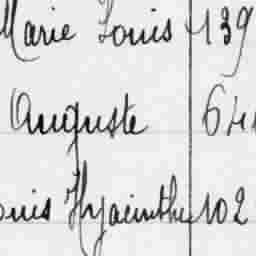 Marie Louis 139
Auguste 641
ouis Hyacinthe 102